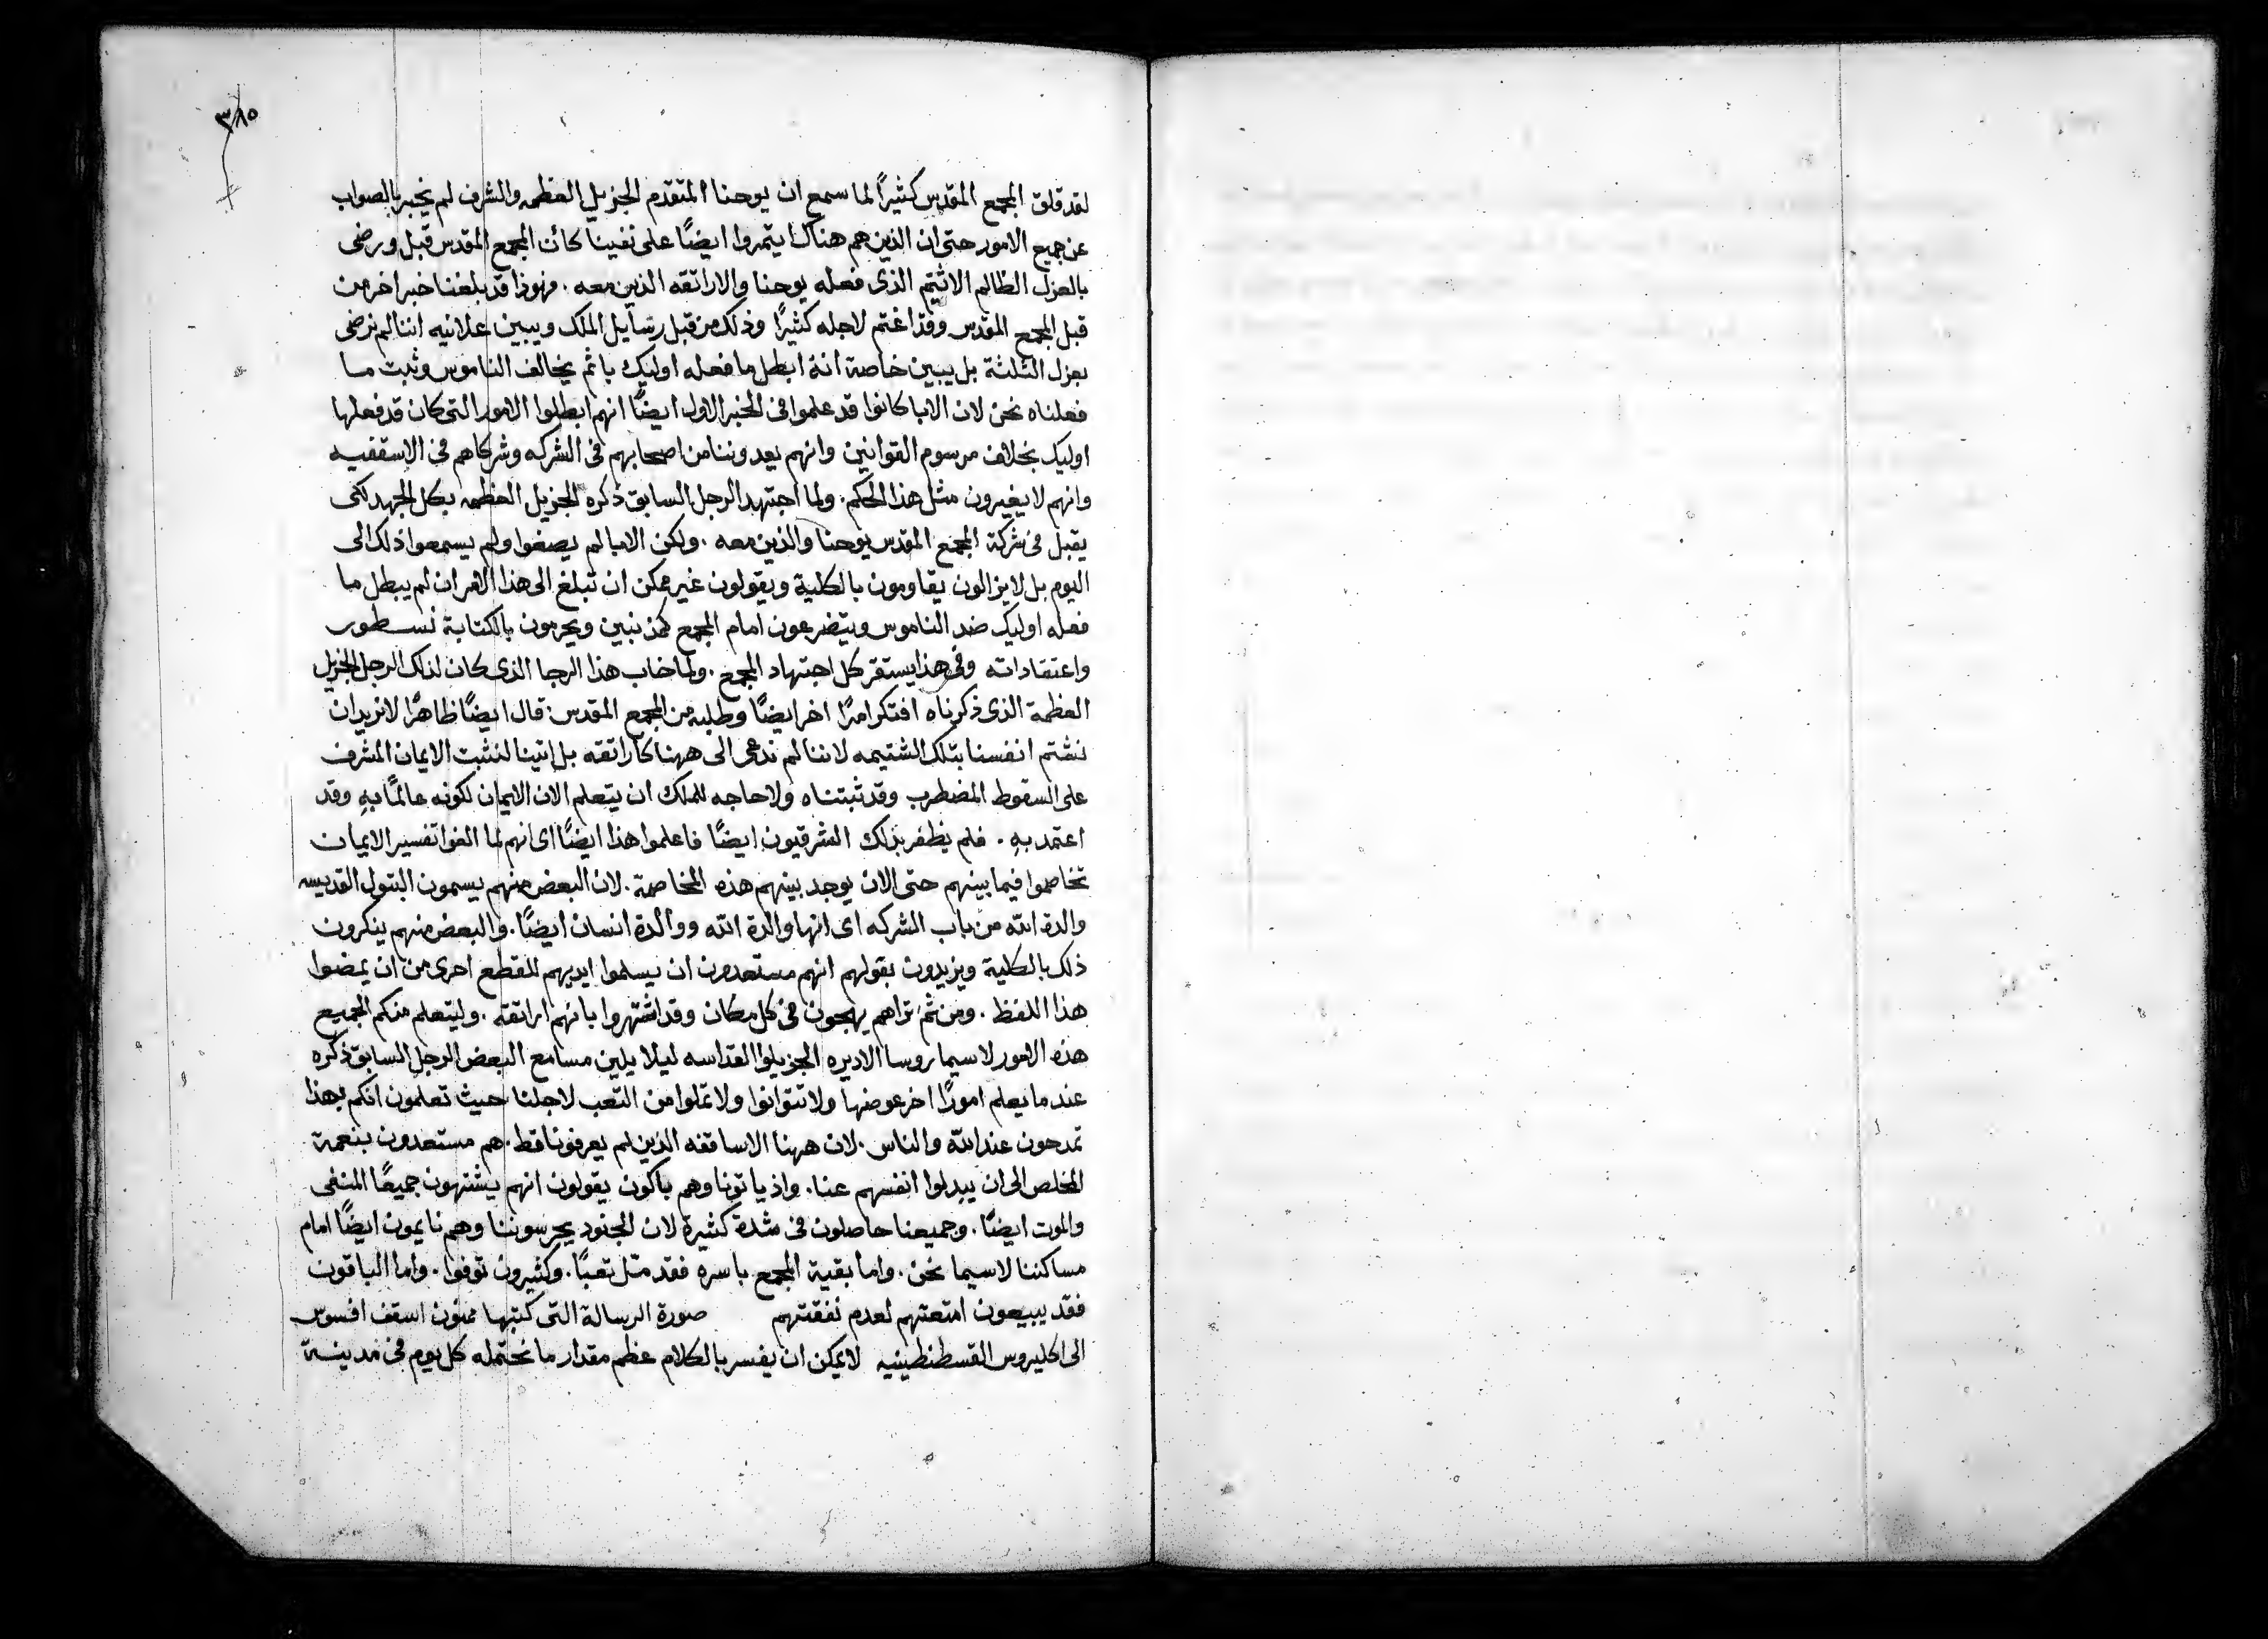 ٣٨٥
لقد قلق المجمع المقدس كثيرًا لما سمع ان يوحنا المتقدم الجزيل العظمه والشرف لم يخبر بالصواب
عن جميع الامور حتى ان الذين هم هناك ايتمروا ايضًا على نفينا كأن المجمع المقدس قبل ورضى
بالعزل الظالم الاثيم الذى فعله يوحنا والاراتقه الذين معه . فهوذا قد بلغنا خبر اخر من
قبل المجمع المقدس وقد اغتم لاجله كثيرًا وذلك من قبل رسايل الملك ويبين علانيه اننا لم نرضى
بعزل الثلثة بل يبين خاصة انه ابطل ما فعله اوليك باثم يخالف الناموس وثبت ما
فعلناه نحن لان الابا كانوا قد علموا فى الخبر الاول ايضًا انهم ابطلوا الامور التى كان قد فعلها
اوليك بخلاف مرسوم القوانين وانهم يعدوننا من اصحابهم فى الشركه وشركاهم فى الاسقفيه
وانهم لا يغيرون مثل هذا الحكم . ولما اجتهد الرجل السابق ذكره الجزيل العظمه بكل الجهد لكى
يقبل فى شركة المجمع المقدس يوحنا والذين معه . ولكن الابا لم يصغوا ولم يسمعوا ذلك الى
اليوم بل لا يزالون يقاومون بالكلية ويقولون غير ممكن ان تبلغ الى هذا الامر ان لم يبطل ما
فعله اوليك ضد الناموس ويتضرعون امام المجمع كمذنبين ويحرمون بالكتابة نسطور
واعتقاداته وفى هذا يستقر كل اجتهاد المجمع . ولما خاب هذا الرجا الذى كان لذلك الرجل الجزيل
العظمة الذى ذكرناه افتكر امرًا اخر ايضًا وطلبه من المجمع المقدس : قال ايضًا ظاهرًا لا نريد ان
نشتم انفسنا بتلك الشتيمه لاننا لم ندعى الى ههنا كاراتقه بل اتينا لنثبت الايمان المشرف
على السقوط المضطرب وقد ثبتناه ولا حاجه للملك ان يتعلم الان الايمان لكونه عالمًا به وقد
اعتمد به . فلم يظفر بذلك الشرقيون ايضًا فاعلموا هذا ايضًا اى انهم لما الفوا تفسير الايمان
تخاصموا فيما بينهم حتى الان يوجد بينهم هذه المخاصمة . لان البعض منهم يسمون البتول القديسه
والدة الله من باب الشركه اى انها والدة الله ووالدة انسان ايضًا . والبعض منهم ينكرون
ذلك بالكلية ويزيدون بقولهم انهم مستعدون ان يسلموا ايديهم للقطع احرى من ان يمضوا
هذا اللفظ . ومن ثم تراهم يهجون فى كل مكان وقد اشتهروا بانهم اراتقه . وليتعلم منكم الجميع
هذه الامور لا سيما روسا الاديره الجزيلوا القداسه ليلا يلين مسامع البعض الرجل السابق ذكره
عندما يعلم امورًا اخر عوضها ولا تتوانوا ولا تملوا من التعب لاجلنا حيث تعلمون انكم بهذا
تمدحون عند الله والناس . لان ههنا الاساقفه الذين لم يعرفونا قط . هم مستعدون بنعمة
المخلص الى ان يبدلوا انفسهم عنا . واذ ياتونا وهم باكون يقولون انهم يشتهون جميعًا المنفى
والموت ايضًا . وجميعنا حاصلون فى شدة كثيرة لان الجنود يحرسوننا وهم نايمون ايضًا امام
مساكننا لا سيما نحن . واما بقية المجمع باسره فقد مثل تعبًا . وكثيرون توفوا . واما الباقون
فقد يبيعون امتعتهم لعدم نفقتهم صورة الرسالة التى كتبها ممنون اسقف افسوس
الى اكليروس القسطنطينيه لا يمكن ان يفسر بالكلام عظم مقدار ما نحتمله كل يوم فى مدينة